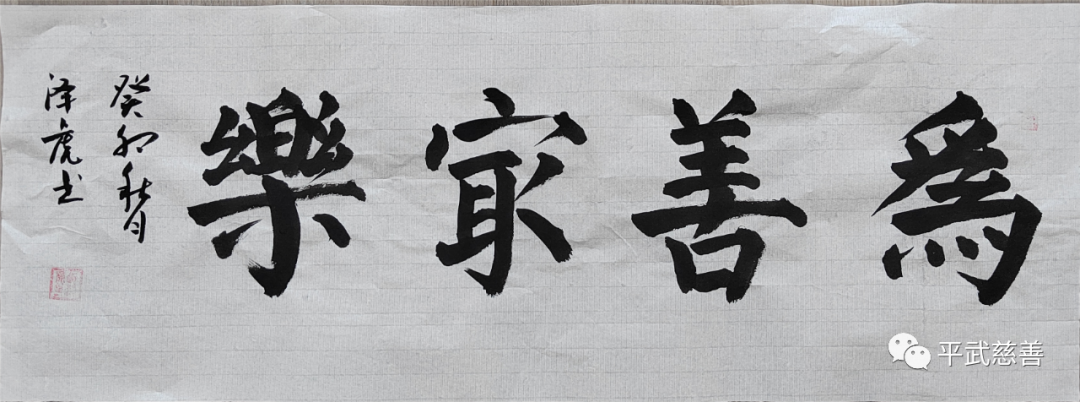 爲善㝡樂
癸卯秋月
泽虎书
平武慈善